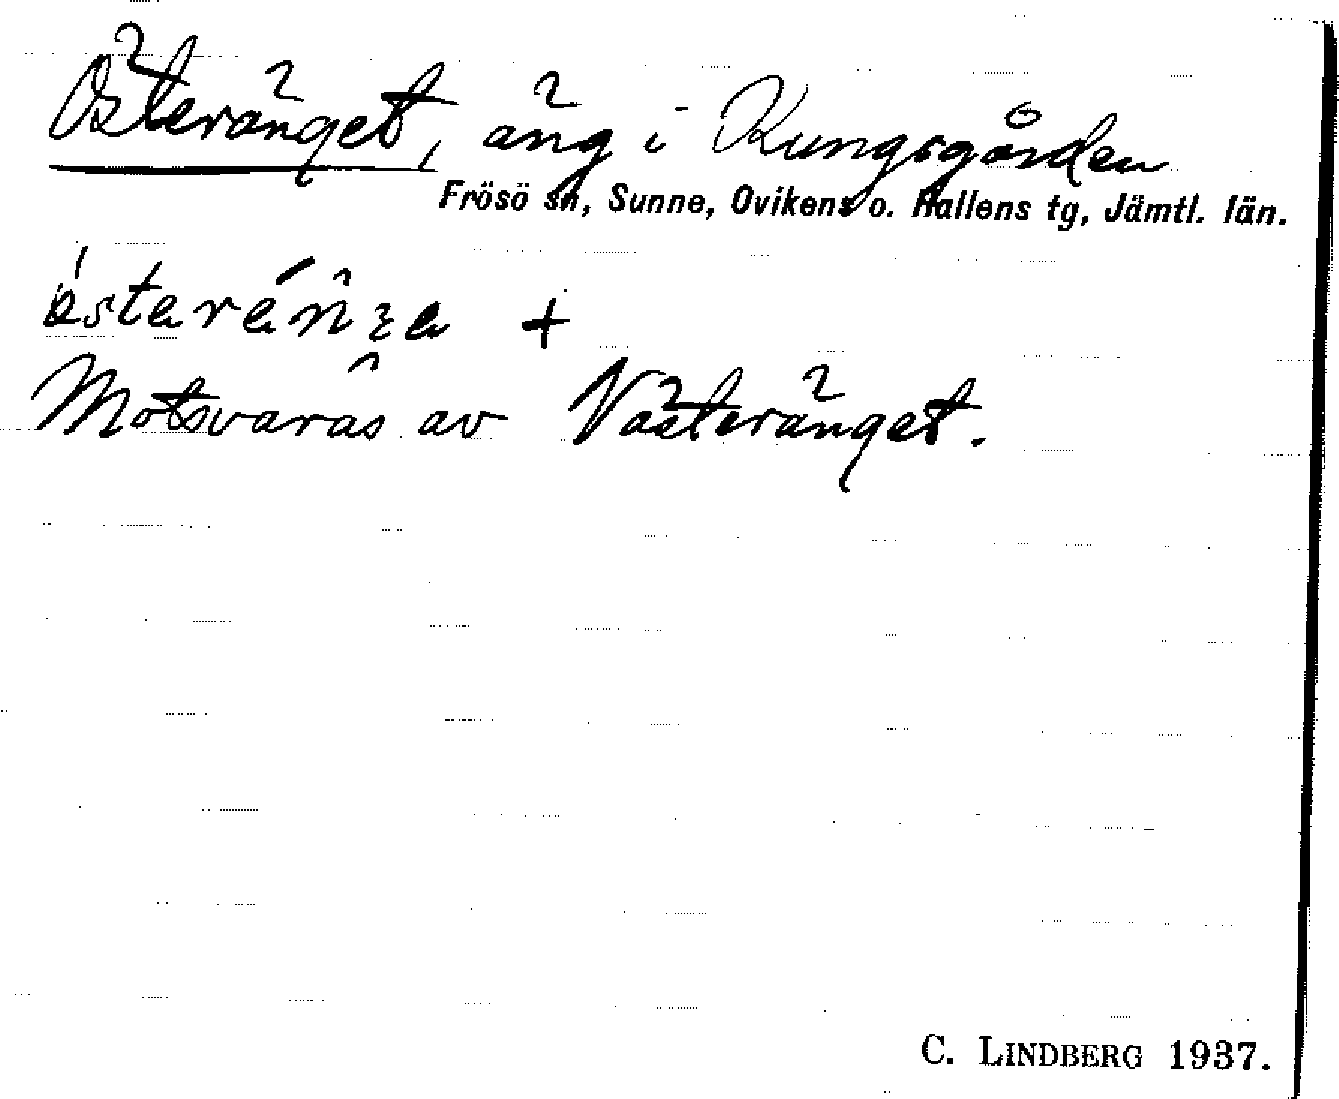 Österänget, äng i Kungsgården
Frösö sn, Sunne, Ovikens o. Hallens tg, Jämtl. län.
+
Motsvaras av Västeränget.
C. LINDBERG 1937.